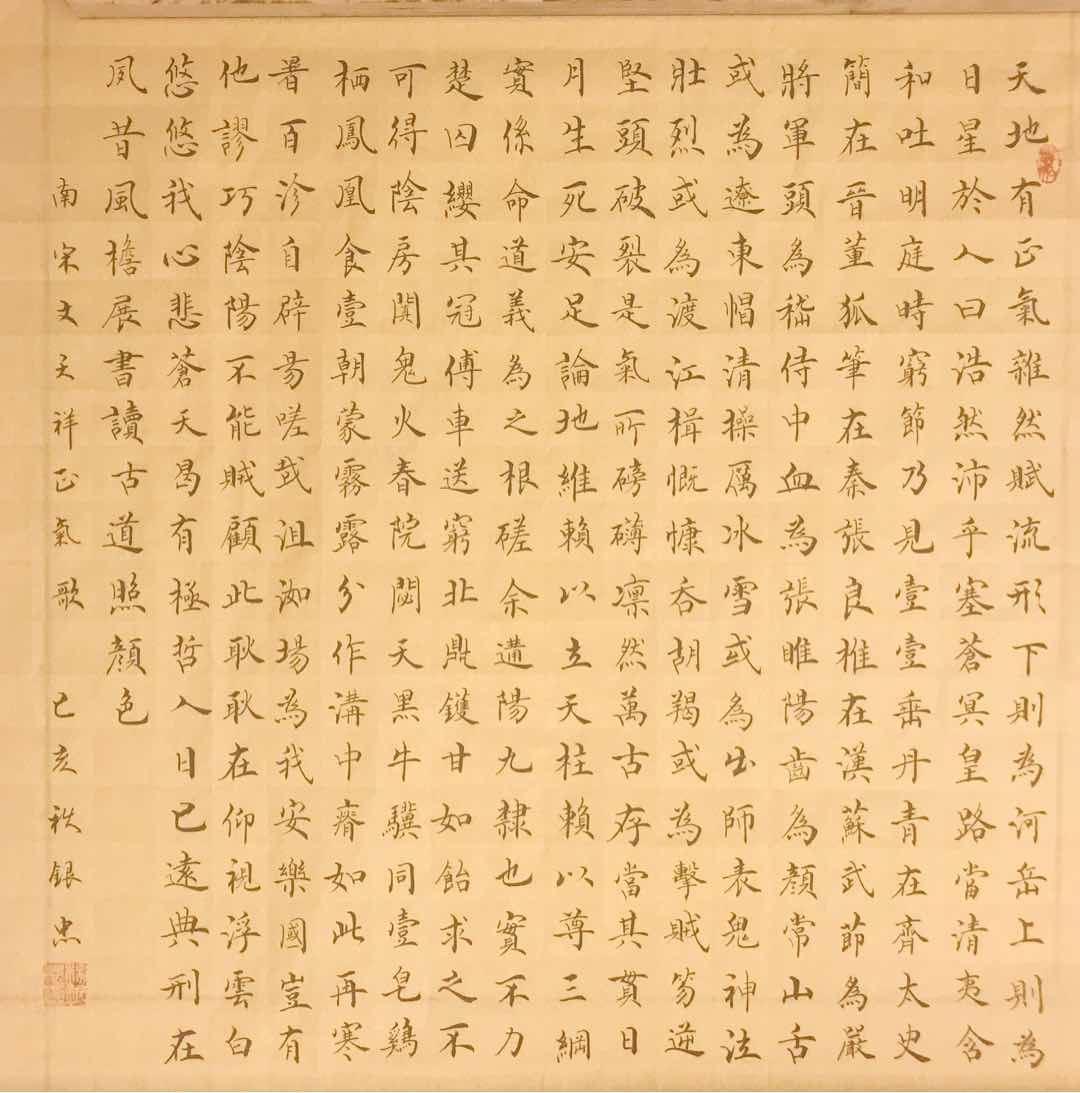 天地有正氣雜然賦流形下則為河岳上則為
日星於人曰浩然沛乎塞蒼冥皇路當清夷含
和吐明庭時窮節乃見壹壹垂丹青在齊太史
簡在晉董狐筆在秦張良椎在漢蘇武節為嚴
將軍頭為嵇侍中血為張睢陽齒為顏常山舌
或為遼東帽清操厲冰雪或為出師表鬼神泣
壯烈或為渡江楫慨慷吞胡羯或為擊賊笏逆
堅頭破裂是氣所磅礴凜然萬古存當其貫日
月生死安足論地維賴以立天柱賴以尊三綱
實係命道義為之根磋余遘陽九隸也實不力
楚囚纓其冠傅車送窮北鼎鑊甘如飴求之不
可得陰房闃鬼火春院閟天黑牛驥同壹皂鷄
栖鳳凰食壹朝蒙霧露分作溝中瘠如此再寒
暑百沴自辟易嗟哉沮洳場為我安樂國豈有
他謬巧陰陽不能賊顧此耿耿在仰視浮雲白
悠悠我心悲蒼天曷有極哲人日已遠典刑在
夙昔風檐展書讀古道照顏色
南宋文天祥正氣歌 己亥秋銀忠